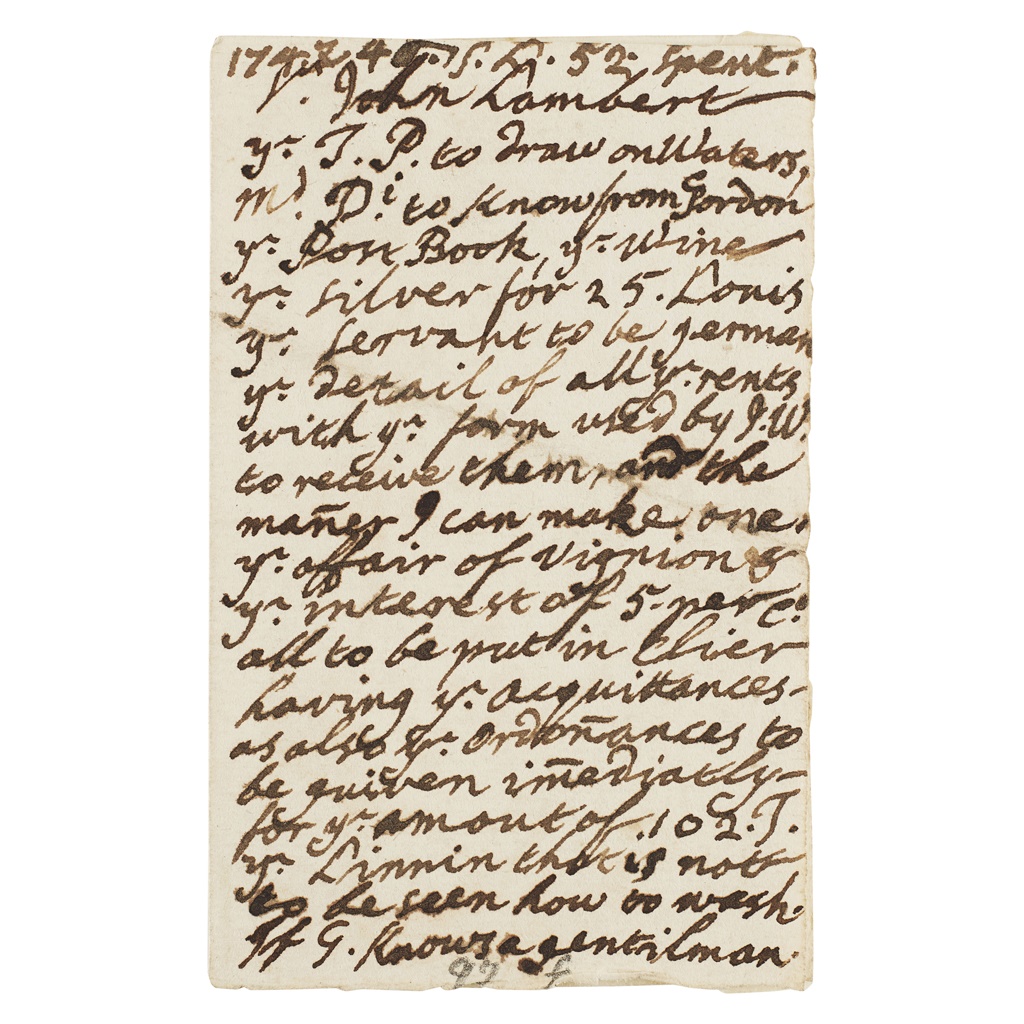 S. L. 52. spent.
John Lambert
yr. T. P. to draw on Waters,
Md. Di. to know from Gordon
yr. Port Book, yr. Wine
yr. silver for 25. Louis
yr. servant to be german
yr. detail of all yr. rents
with yr. form used by J. W.
to receive them, and the
mañer I can make one
yr. affair of
yr. interest of 5. per Ct.
all to be put in Clier
having yr. acquittances
as also yr. ordoñances to
be guiven im̃ediatly
for yr. amout of 102. T.
yr. Linnin that is nott
to be seen how to wash.
If G. knows a gentilman.